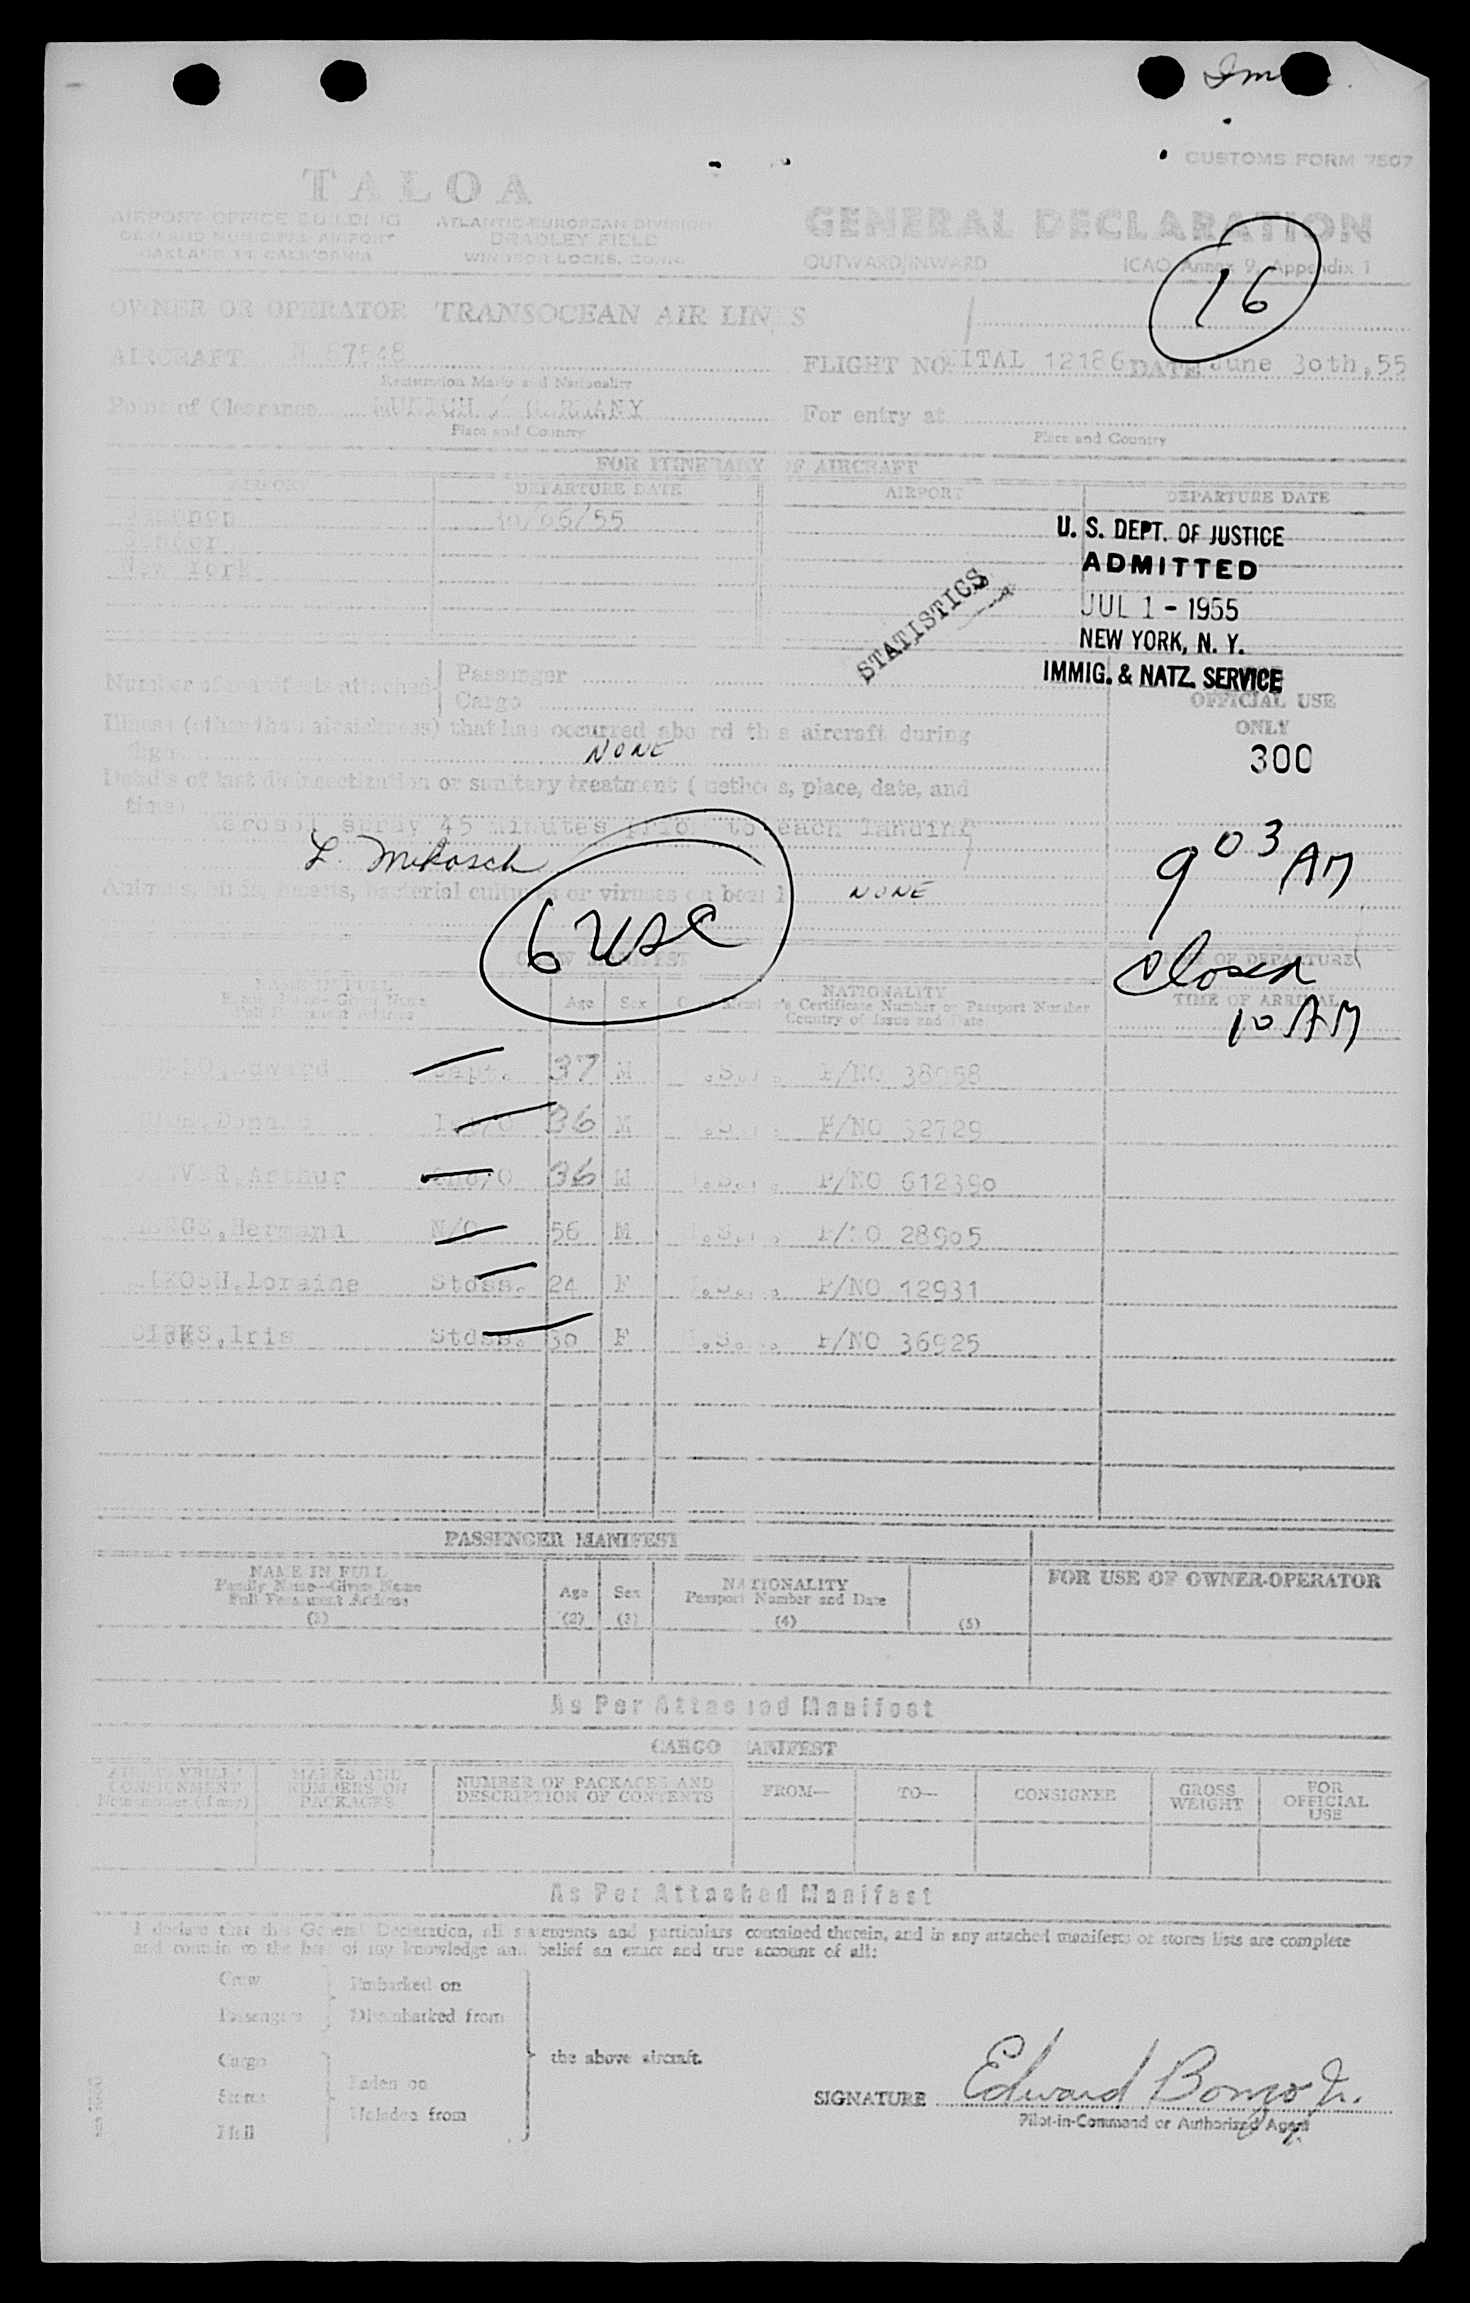 CUSTOMS FORM 7507
TALOA
AIRPORT OFFICE BUILDING
OAKLAND MUNICIPAL AIRPORT
OAKLAND 14, CALIFORNIA
ATLANTIC-EUROPEAN DIVISION
BRADLEY FIELD
WINDSOR LOCKS, CONN.
GENERAL DECLARATION
OUTWARD/INWARD
ICAO Annex 9, Appendix 1
16
OWNER OR OPERATOR TRANSOCEAN AIR LINES
AIRCRAFT
Registration Marks and Nationality
FLIGHT NO. 12186 DATE June 3oth,55
Point of Clearance MUNICH / GERMANY
Place and Country
For entry at
Place and Country
FOR ITINERARY OF AIRCRAFT
AIRPORT DEPARTURE DATE AIRPORT DEPARTURE DATE
Shannon 30/06/55
Gander
New York
U. S. DEPT. OF JUSTICE
ADMITTED
JUL 1 - 1955
NEW YORK, N. Y.
IMMIG. & NATZ. SERVICE
STATISTICS
Number of manifests attached
Passenger
Cargo
OFFICIAL USE
ONLY
300
Illness (other than airsickness) that has occurred aboard this aircraft during
flight
NONE
Details of last disinsectization or sanitary treatment (methods, place, date, and
time)
Aerosol spray 45 minutes prior to each landing
L. Mikosch
903 AM
Animals, birds, insects, bacterial cultures or viruses on board NONE
6 USC
CREW MANIFEST
TIME OF DEPARTURE
Closed
TIME OF ARRIVAL
10 AM
NAME IN FULL
Family Name—Given Name
Full Permanent Address
Age Sex
NATIONALITY
Certificate Number or Passport Number
Country of Issue and Date
Edward Capt. 37 M U.S.A. P/NO 38058
36 M U.S.A. P/NO 32729
Arthur 36 M U.S.A. P/NO 61239o
Hermann N/O 56 M U.S.A. P/NO 289o5
Loraine Stdss. 24 F U.S.A. P/NO 12931
Iris Stdss. 3o F U.S.A. P/NO 36925
PASSENGER MANIFEST
NAME IN FULL
Family Name—Given Name
Full Permanent Address
(1)
Age
(2)
Sex
(3)
NATIONALITY
Passport Number and Date
(4)
(5)
FOR USE OF OWNER-OPERATOR
As Per Attached Manifest
CARGO MANIFEST
MARKS AND
NUMBERS ON
PACKAGES
NUMBER OF PACKAGES AND
DESCRIPTION OF CONTENTS
FROM—
TO—
CONSIGNEE
GROSS
WEIGHT
FOR
OFFICIAL
USE
As Per Attached Manifest
I declare that this General Declaration, all statements and particulars contained therein, and in any attached manifests or stores lists are complete
and contain to the best of my knowledge and belief an exact and true account of all:
Crew
Passengers
Embarked on
Disembarked from
Cargo
Stores
Mail
Laden on
Unladen from
the above aircraft.
SIGNATURE Edward Bonzo Jr.
Pilot-in-Command or Authorized Agent